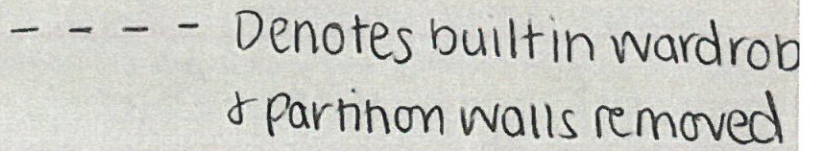 ---- Denotes builtin wardrob
& Partition walls removed